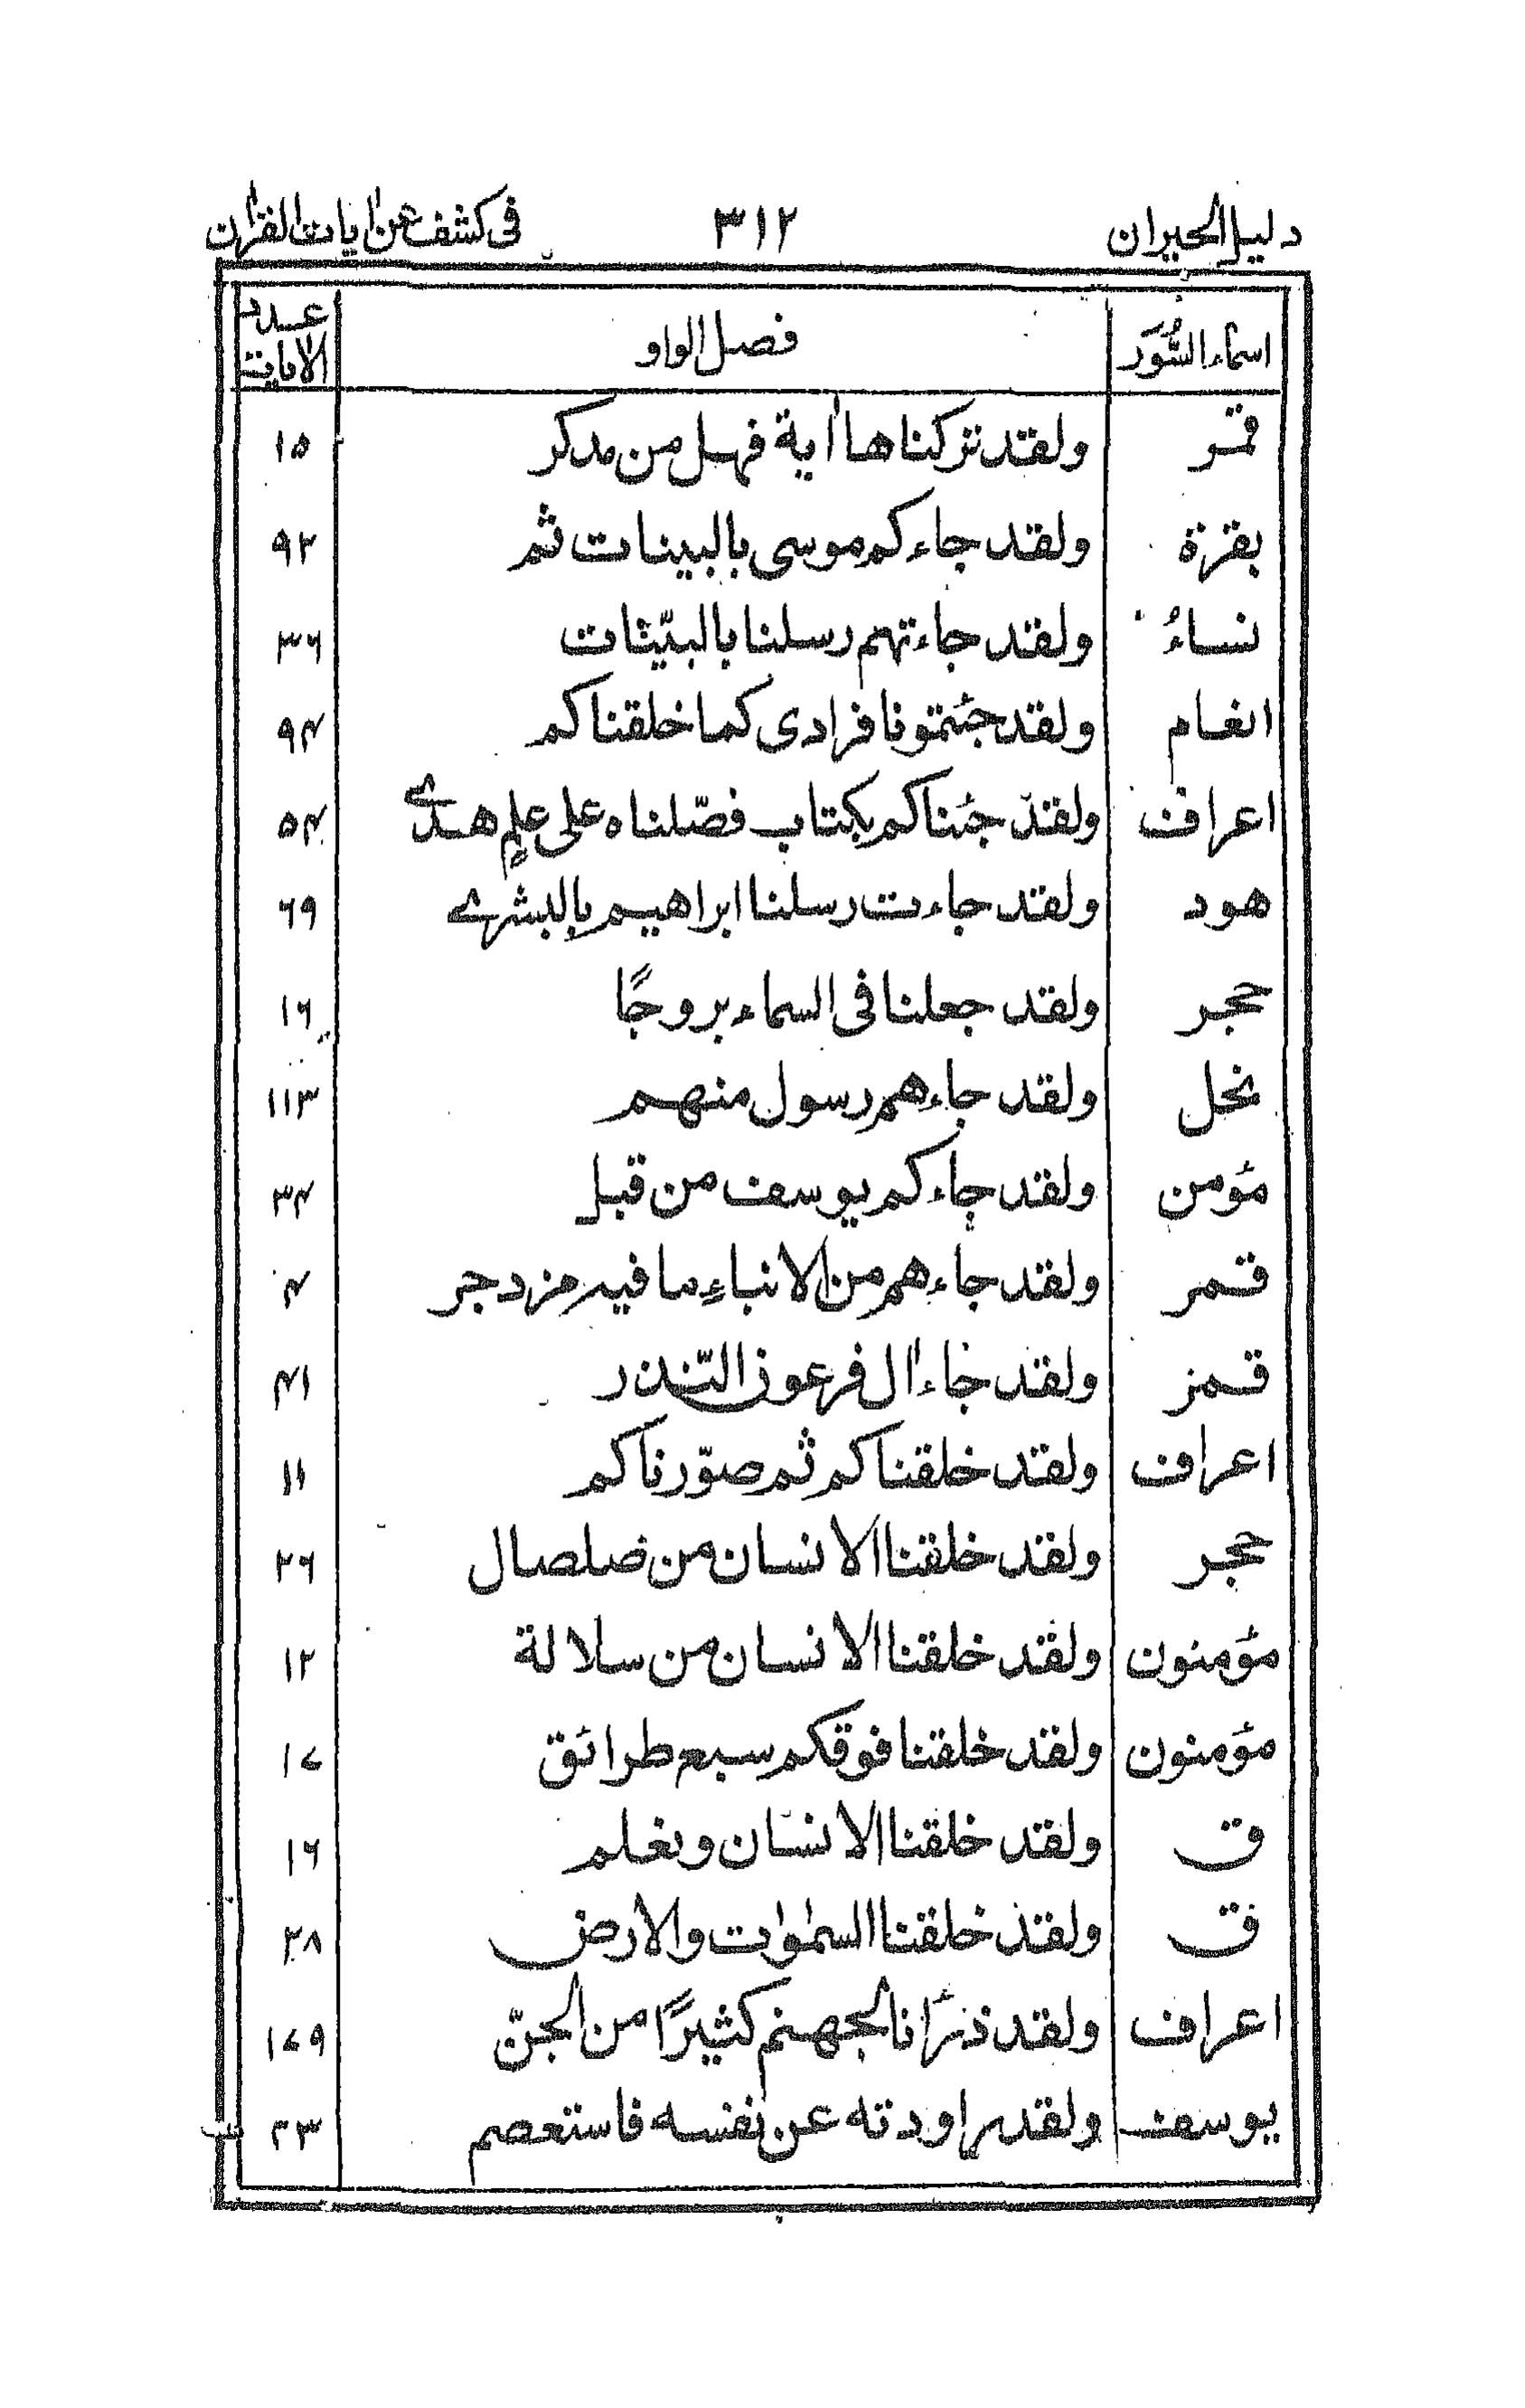 دليل الحيران ٣١٢ في كشف عن اٰيات القراٰن
اسماء السُّوَر فصل الواو عدد الاٰيات
قمر ولقد تركناها اٰية فهل من مدكر ١٥
بقرة ولقد جاءكم موسى بالبينات ثم ٩٢
نساءُ ولقد جاءتهم رسلنا بالبيّنات ٣٦
انعام ولقد جئتمونا فرادى كما خلقناكم ٩٤
اعراف ولقد جئناكم بكتاب فصّلناه على علمٍ هدى ٥٢
هود ولقد جاءت رسلنا ابراهيم بالبشرے ٦٩
حجر ولقد جعلنا في السماء بروجًا ١٦
نحل ولقد جاءهم رسول منهم ١١٣
مؤمن ولقد جاءكم يوسف من قبل ٣٤
قمر ولقد جاءهم من الانباءِ ما فيه مزدجر ٤
قمر ولقد جاء اٰل فرعون النّذر ٤١
اعراف ولقد خلقناكم ثم صوّرناكم ١١
حجر ولقد خلقنا الانسان من صلصال ٢٦
مؤمنون ولقد خلقنا الانسان من سلالة ١٢
مؤمنون ولقد خلقنا فوقكم سبع طرائق ١٧
ق ولقد خلقنا الانسان ونعلم ١٦
ق ولقد خلقنا السمٰوٰت والارض ٣٨
اعراف ولقد ذرَأنا لجهنم كثيرًا من الجنّ ١٧٩
يوسف ولقد راودته عن نفسه فاستعصم ٢٣